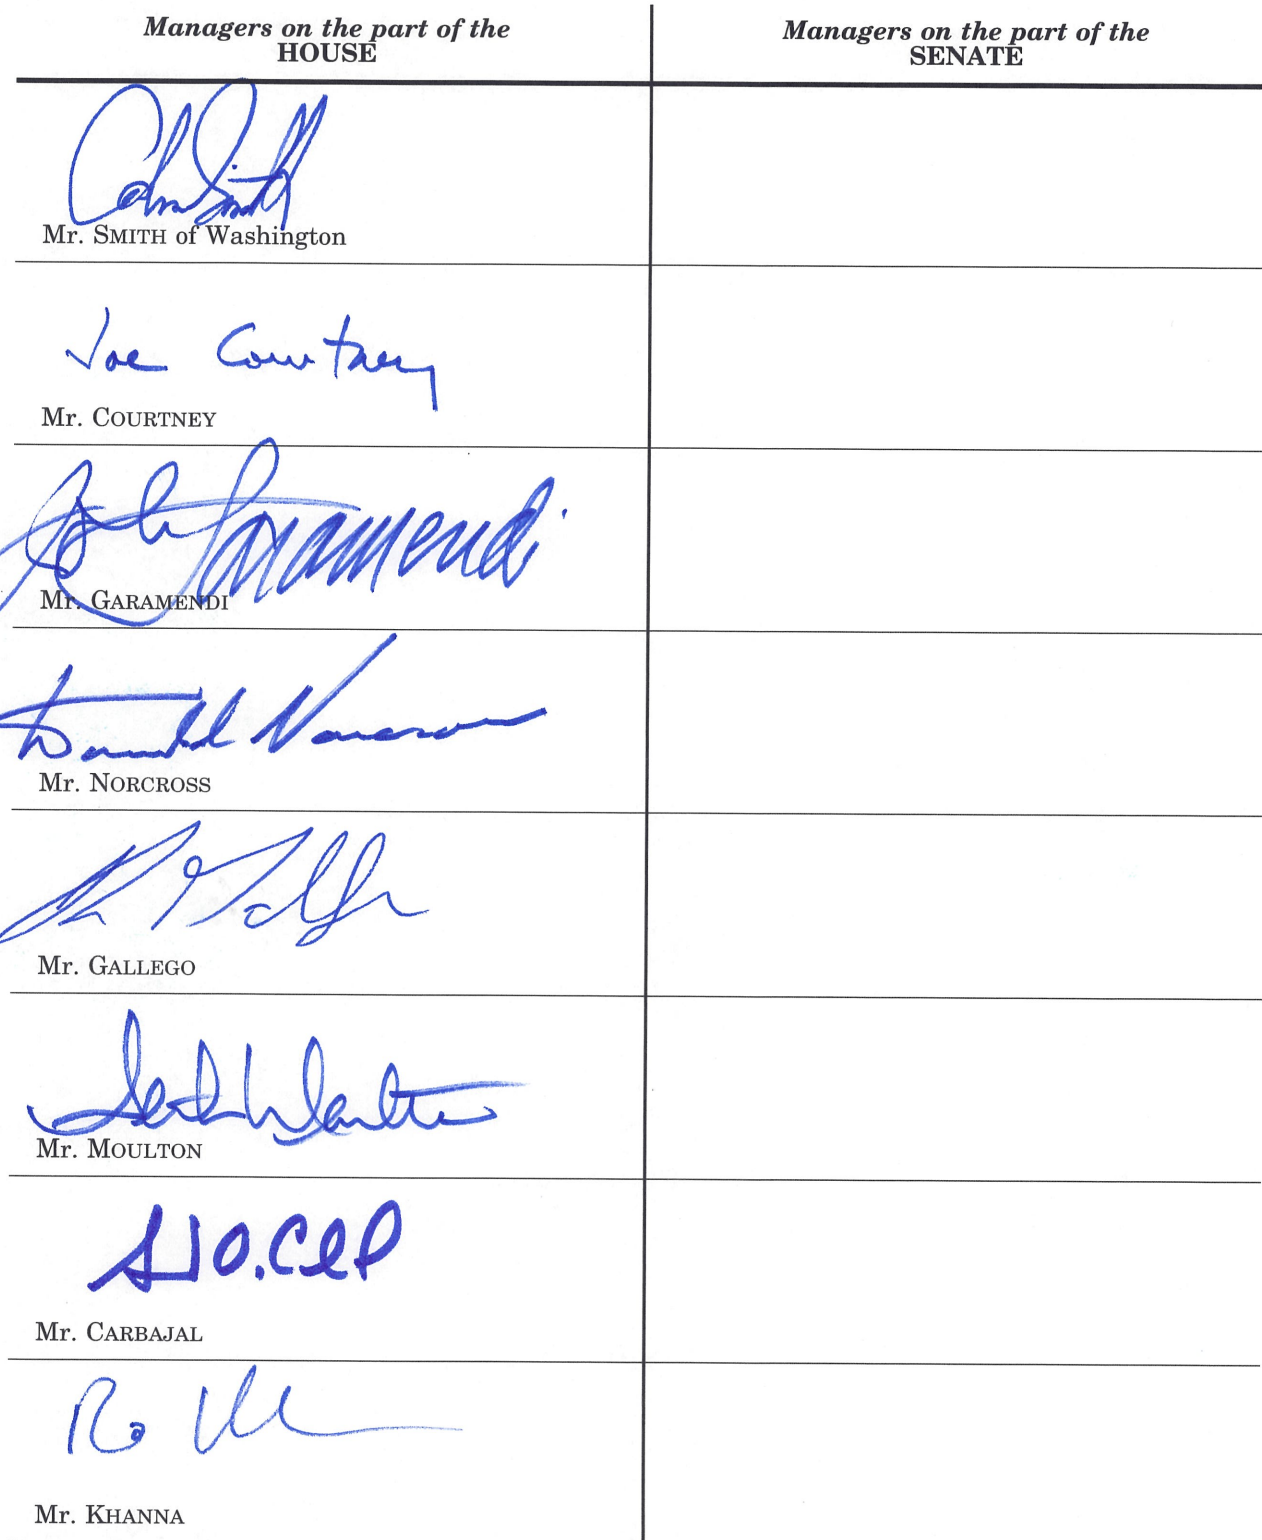 Managers on the part of the
HOUSE
Managers on the part of the
SENATE
Mr. SMITH of Washington
Joe Courtney
Mr. COURTNEY
John Garamendi
Mr. GARAMENDI
Donald Norcross
Mr. NORCROSS
Mr. GALLEGO
Seth Moulton
Mr. MOULTON
Mr. CARBAJAL
Mr. KHANNA